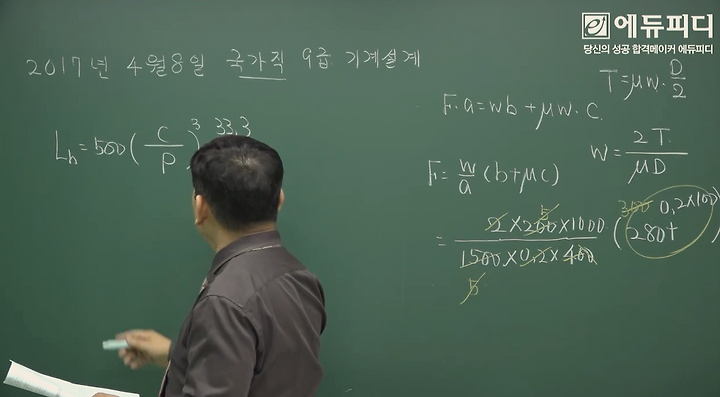 에듀피디
당신의 성공 합격메이커 에듀피디
2017년 4월8일 국가직 9급 기계설계
Lh = 500 ( C / P )^3 33.3
T = μw · D/2
F·a = wb + μw·c
w = 2T / μD
F = w/a (b+μc)
= 2×200×1000 / 1500×0.2×400 (280+ 0.2×100)
5
300
5